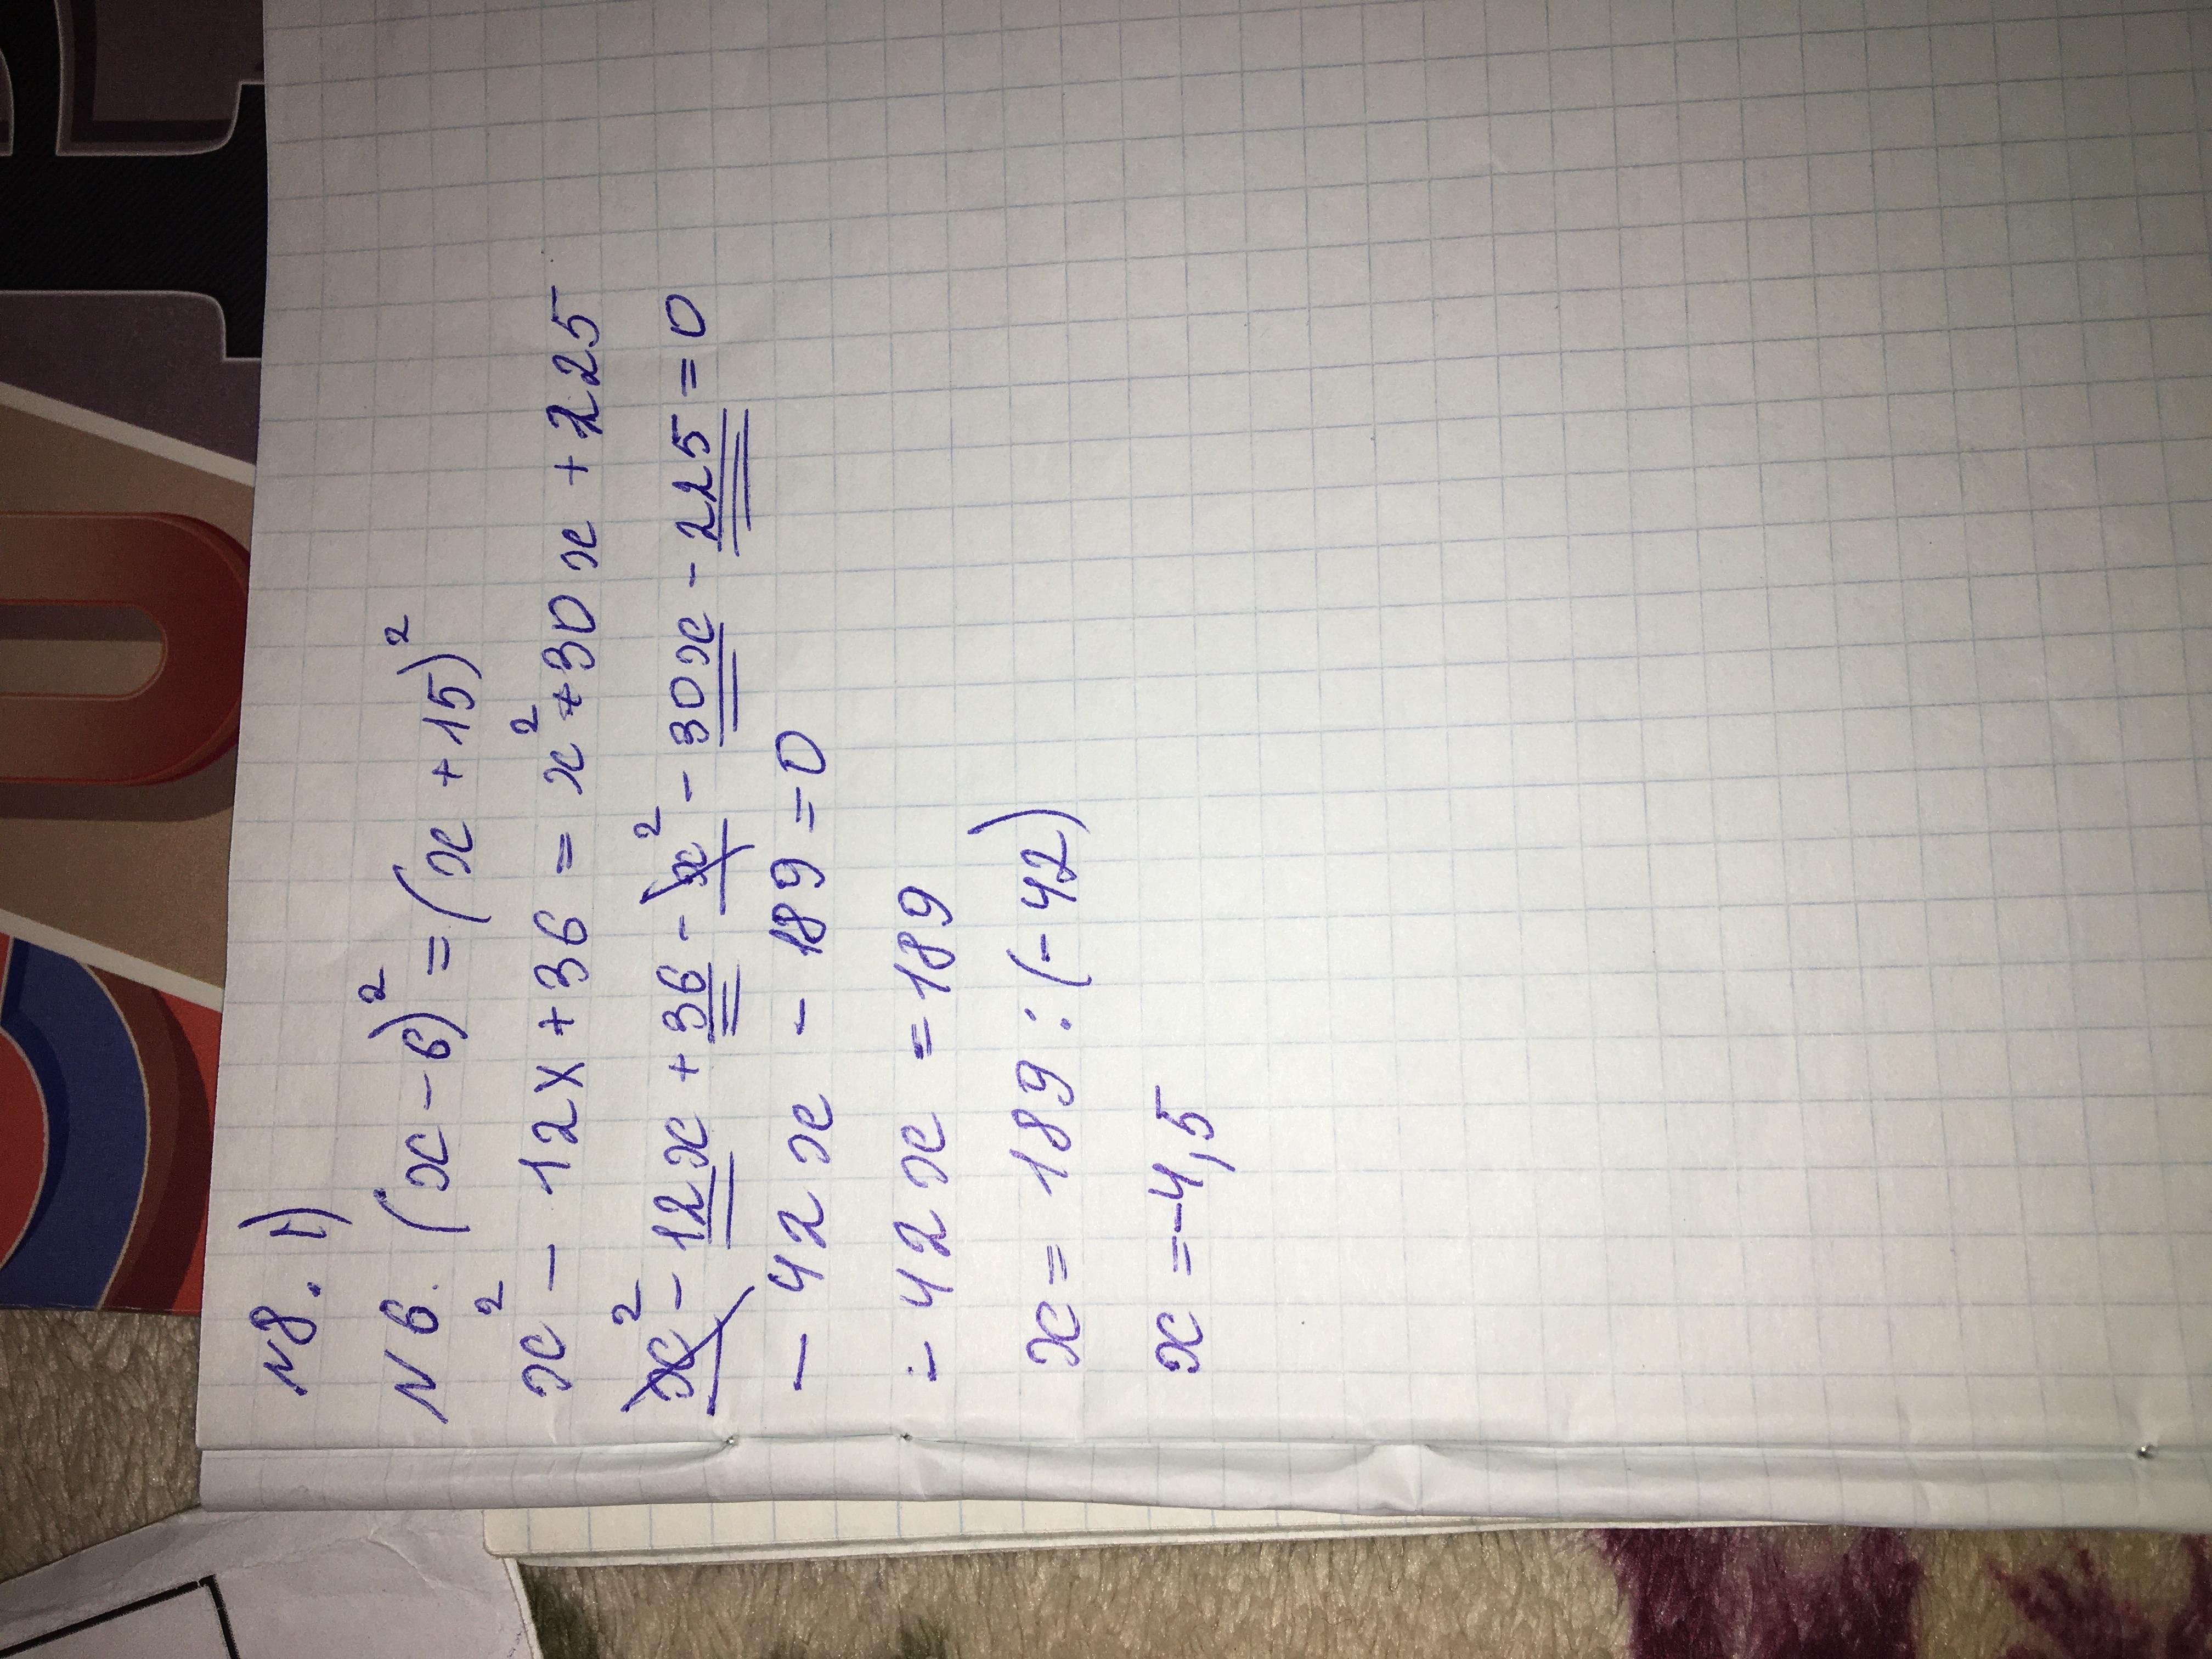 N8. 1)
N 6. (x - 6)² = (x + 15)²
x² - 12x + 36 = x² + 30x + 225
x² - 12x + 36 - x² - 30x - 225 = 0
- 42x - 189 = 0
- 42x = 189
x = 189 : (-42)
x = -4,5